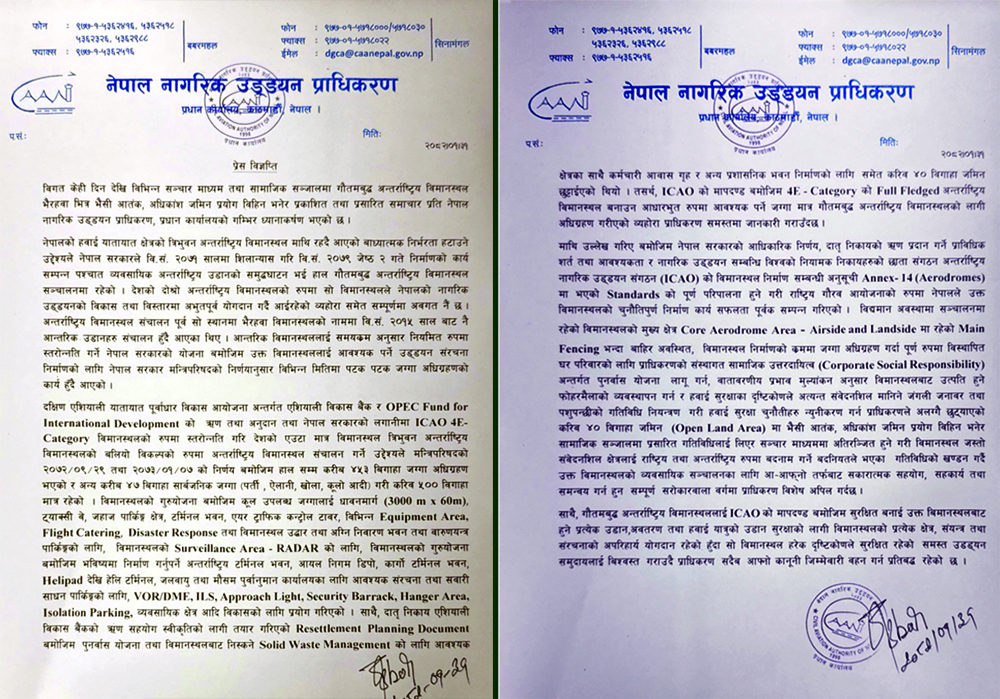 फोन : ९७७-१-५३६२४१६, ५३६२५१८
५३६२३२६, ५३६२९८८
फ्याक्स : ९७७-१-५३६२५१६
बबरमहल
फोन : ९७७-०१-५७१८०००/५७१८०३०
फ्याक्स : ९७७-०१-५७१८०२२
ईमेल : dgca@caanepal.gov.np
सिनामंगल
CAAN
नेपाल नागरिक उड्डयन प्राधिकरण
प्रधान कार्यालय, काठमाडौं, नेपाल ।
प.सं:
मितिः
२०८२/०१/३१
प्रेस विज्ञप्ति
विगत केही दिन देखि विभिन्न सञ्चार माध्यम तथा सामाजिक सञ्जालमा गौतमबुद्ध अन्तर्राष्ट्रिय विमानस्थल
भैरहवा भित्र भैसी आतंक, अधिकांश जमिन प्रयोग विहिन भनेर प्रकाशित तथा प्रसारित समाचार प्रति नेपाल
नागरिक उड्डयन प्राधिकरण, प्रधान कार्यालयको गम्भिर ध्यानाकर्षण भएको छ ।
नेपालको हवाई यातायात क्षेत्रको त्रिभुवन अन्तर्राष्ट्रिय विमानस्थल माथि रहदै आएको बाध्यात्मक निर्भरता हटाउने
उद्देश्यले नेपाल सरकारले वि.सं. २०७१ सालमा शिलान्यास गरि वि.सं. २०७९ जेष्ठ २ गते निर्माणको कार्य
सम्पन्न पश्चात व्यवसायिक अन्तर्राष्ट्रिय उडानको समुद्घाटन भई हाल गौतमबुद्ध अन्तर्राष्ट्रिय विमानस्थल
सञ्चालनमा रहेको । देशको दोश्रो अन्तर्राष्ट्रिय विमानस्थलको रुपमा सो विमानस्थलले नेपालको नागरिक
उड्डयनको विकास तथा विस्तारमा अभुतपूर्व योगदान गर्दै आईरहेको व्यहोरा समेत सम्पूर्णमा अवगत नै छ ।
अन्तर्राष्ट्रिय विमानस्थल संचालन पूर्व सो स्थानमा भैरहवा विमानस्थलको नाममा वि.सं. २०१५ साल बाट नै
आन्तरिक उडानहरु संचालन हुँदै आएका थिए । आन्तरिक विमानस्थललाई समयक्रम अनुसार नियमित रुपमा
स्तरोन्नति गर्ने नेपाल सरकारको योजना बमोजिम उक्त विमानस्थललाई आवश्यक पर्ने उड्डयन संरचना
निर्माणको लागि नेपाल सरकार मन्त्रिपरिषदको निर्णयानुसार विभिन्न मितिमा पटक पटक जग्गा अधिग्रहणको
कार्य हुँदै आएको ।
दक्षिण एशियाली यातायात पूर्वाधार विकास आयोजना अन्तर्गत एशियाली विकास बैंक र OPEC Fund for
International Development को ऋण तथा अनुदान तथा नेपाल सरकारको लगानीमा ICAO 4E-
Category विमानस्थलको रुपमा स्तरोन्नति गरि देशको एउटा मात्र विमानस्थल त्रिभुवन अन्तर्राष्ट्रिय
विमानस्थलको बलियो विकल्पको रुपमा अन्तर्राष्ट्रिय विमानस्थल संचालन गर्ने उद्देश्यले मन्त्रिपरिषदको
२०७२/०९/२९ तथा २०७३/०१/०७ को निर्णय बमोजिम हाल सम्म करीब ४५३ बिगाहा जग्गा अधिग्रहण
भएको र अन्य करीब ४७ बिगाहा सार्वजनिक जग्गा (पर्ती , ऐलानी, खोला, कूलो आदी) गरी करिब ५०० बिगाहा
मात्र रहेको । विमानस्थलको गुरुयोजना बमोजिम कूल उपलब्ध जग्गालाई धावनमार्ग (3000 m x 60m),
ट्याक्सी वे, जहाज पार्किङ्ग क्षेत्र, टर्मिनल भवन, एयर ट्राफिक कन्ट्रोल टावर, विभिन्न Equipment Area,
Flight Catering, Disaster Response तथा विमानस्थल उद्धार तथा अग्नि निवारण भवन तथा बारुणयन्त्र
पार्किङ्गको लागि, विमानस्थलको Surveillance Area - RADAR को लागि, विमानस्थलको गुरुयोजना
बमोजिम भविष्यमा निर्माण गर्नुपर्ने अन्तर्राष्ट्रिय टर्मिनल भवन, आयल निगम डिपो, कार्गो टर्मिनल भवन,
Helipad देखि हेलि टर्मिनल, जलवायु तथा मौसम पुर्वानुमान कार्यालयका लागि आवश्यक संरचना तथा सवारी
साधन पार्किङ्गको लागि, VOR/DME, ILS, Approach Light, Security Barrack, Hanger Area,
Isolation Parking, व्यवसायिक क्षेत्र आदि विकासको लागि प्रयोग गरिएको । साथै, दातृ निकाय एशियाली
विकास बैंकको ऋण सहयोग स्वीकृतिको लागी तयार गरिएको Resettlement Planning Document
बमोजिम पुनर्वास योजना तथा विमानस्थलबाट निस्कने Solid Waste Management को लागि आवश्यक
फोन : ९७७-१-५३६२४१६, ५३६२५१८
५३६२३२६, ५३६२९८८
फ्याक्स : ९७७-१-५३६२५१६
बबरमहल
फोन : ९७७-०१-५७१८०००/५७१८०३०
फ्याक्स : ९७७-०१-५७१८०२२
ईमेल : dgca@caanepal.gov.np
सिनामंगल
CAAN
नेपाल नागरिक उड्डयन प्राधिकरण
प्रधान कार्यालय, काठमाडौं, नेपाल ।
प.सं:
मितिः
२०८२/०१/३१
क्षेत्रका साथै कर्मचारी आवास गृह र अन्य प्रशासनिक भवन निर्माणको लागि समेत करिव ४० विगाहा जमिन
छुट्टाईएको थियो । तसर्थ, ICAO को मापदण्ड बमोजिम 4E - Category को Full Fledged अन्तर्राष्ट्रिय
विमानस्थल बनाउन आधारभुत रुपमा आवश्यक पर्ने जग्गा मात्र गौतमबुद्ध अन्तर्राष्ट्रिय विमानस्थलको लागी
अधिग्रहण गरीएको व्यहोरा प्राधिकरण समस्तमा जानकारी गराउँदछ ।
माथि उल्लेख गरिए बमोजिम नेपाल सरकारको आधिकारिक निर्णय, दातृ निकायको ऋण प्रदान गर्ने प्राविधिक
शर्त तथा आवश्यकता र नागरिक उड्डयन सम्बन्धि विश्वको नियामक निकायहरुको छाता संगठन अन्तर्राष्ट्रिय
नागरिक उड्डयन संगठन (ICAO) को विमानस्थल निर्माण सम्बन्धी अनुसूची Annex-14 (Aerodromes)
मा भएको Standards को पूर्ण परिपालना हुने गरी राष्ट्रिय गौरव आयोजनाको रुपमा नेपालले उक्त
विमानस्थलको चुनौतिपुर्ण निर्माण कार्य सफलता पूर्वक सम्पन्न गरिएको । विद्यमान अवस्थामा सञ्चालनमा
रहेको विमानस्थलको मुख्य क्षेत्र Core Aerodrome Area - Airside and Landside मा रहेको Main
Fencing भन्दा बाहिर अवस्थित, विमानस्थल निर्माणको क्रममा जग्गा अधिग्रहण गर्दा पूर्ण रुपमा विस्थापित
घर परिवारको लागि प्राधिकरणको संस्थागत सामाजिक उत्तरदायित्व (Corporate Social Responsibility)
अन्तर्गत पुनर्वास योजना लागू गर्न, वातावरणीय प्रभाव मुल्यांकन अनुसार विमानस्थलबाट उत्पति हुने
फोहरमैलाको व्यवस्थापन गर्न र हवाई सुरक्षाका दृष्टिकोणले अत्यन्त संवेदनशिल मानिने जंगली जनावर तथा
पशुपन्छीको गतिविधि नियन्त्रण गरी हवाई सुरक्षा चुनौतीहरु न्युनीकरण गर्न प्राधिकरणले अलग्गै छुट्याएको
करिब ४० बिगाहा जमिन (Open Land Area) मा भैसी आतंक, अधिकांश जमिन प्रयोग विहिन भनेर
सामाजिक सञ्जालमा प्रसारित गतिविधिलाई लिएर सञ्चार माध्यममा अतिरञ्जित हुने गरी विमानस्थल जस्तो
संवेदनशिल क्षेत्रलाई राष्ट्रिय तथा अन्तर्राष्ट्रिय रुपमा बदनाम गर्ने बदनियतले भएका गतिविधिको खण्डन गर्दै
उक्त विमानस्थलको व्यवसायिक सञ्चालनका लागि आ-आफ्नो तर्फबाट सकारात्मक सहयोग, सहकार्य तथा
समन्वय गर्न हुन सम्पूर्ण सरोकारवाला वर्गमा प्राधिकरण विशेष अपिल गर्दछ ।
साथै, गौतमबुद्ध अन्तर्राष्ट्रिय विमानस्थललाई ICAO को मापदण्ड बमोजिम सुरक्षित बनाई उक्त विमानस्थलबाट
हुने प्रत्येक उडान,अवतरण तथा हवाई यात्रुको उडान सुरक्षाको लागी विमानस्थलको प्रत्येक क्षेत्र, संयन्त्र तथा
संरचनाको अपरिहार्य योगदान रहेको हुँदा सो विमानस्थल हरेक दृष्टिकोणले सुरक्षित रहेको समस्त उडड्यन
समुदायलाई बिश्वस्त गराउदै प्राधिकरण सदैब आफ्नो कानूनी जिम्मेवारी वहन गर्न प्रतिबद्ध रहेको छ ।